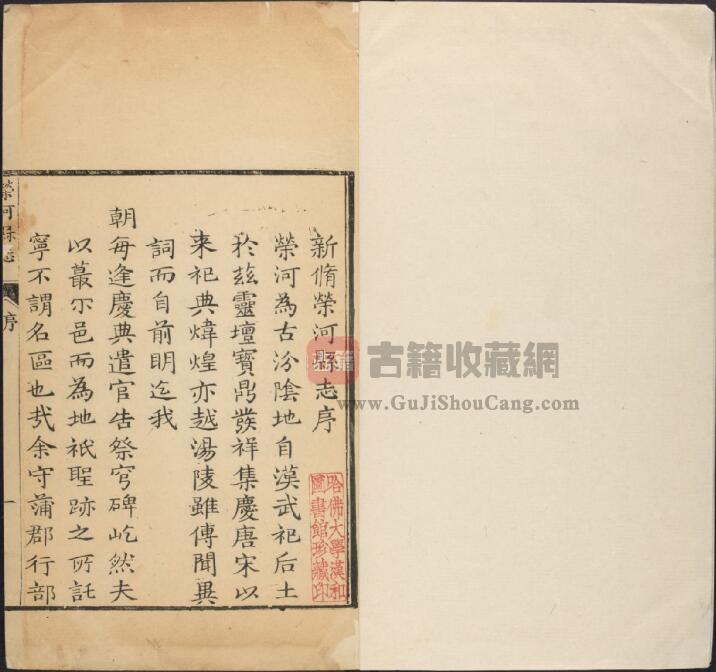 新脩榮河縣志序
榮河為古汾陰地自漢武祀后土
於茲靈壇寶鼎發祥集慶唐宋以
来祀典煒煌亦越湯陵雖傳聞異
詞而自前明迄我
朝每逢慶典遣官告祭穹碑屹然夫
以蕞尔邑而為地祇聖跡之所託
寧不謂名區也哉余守蒲郡行部
榮河縣志
序
一
哈佛大學漢和
圖書館珍藏印
古籍收藏網
www.GuJiShouCang.com